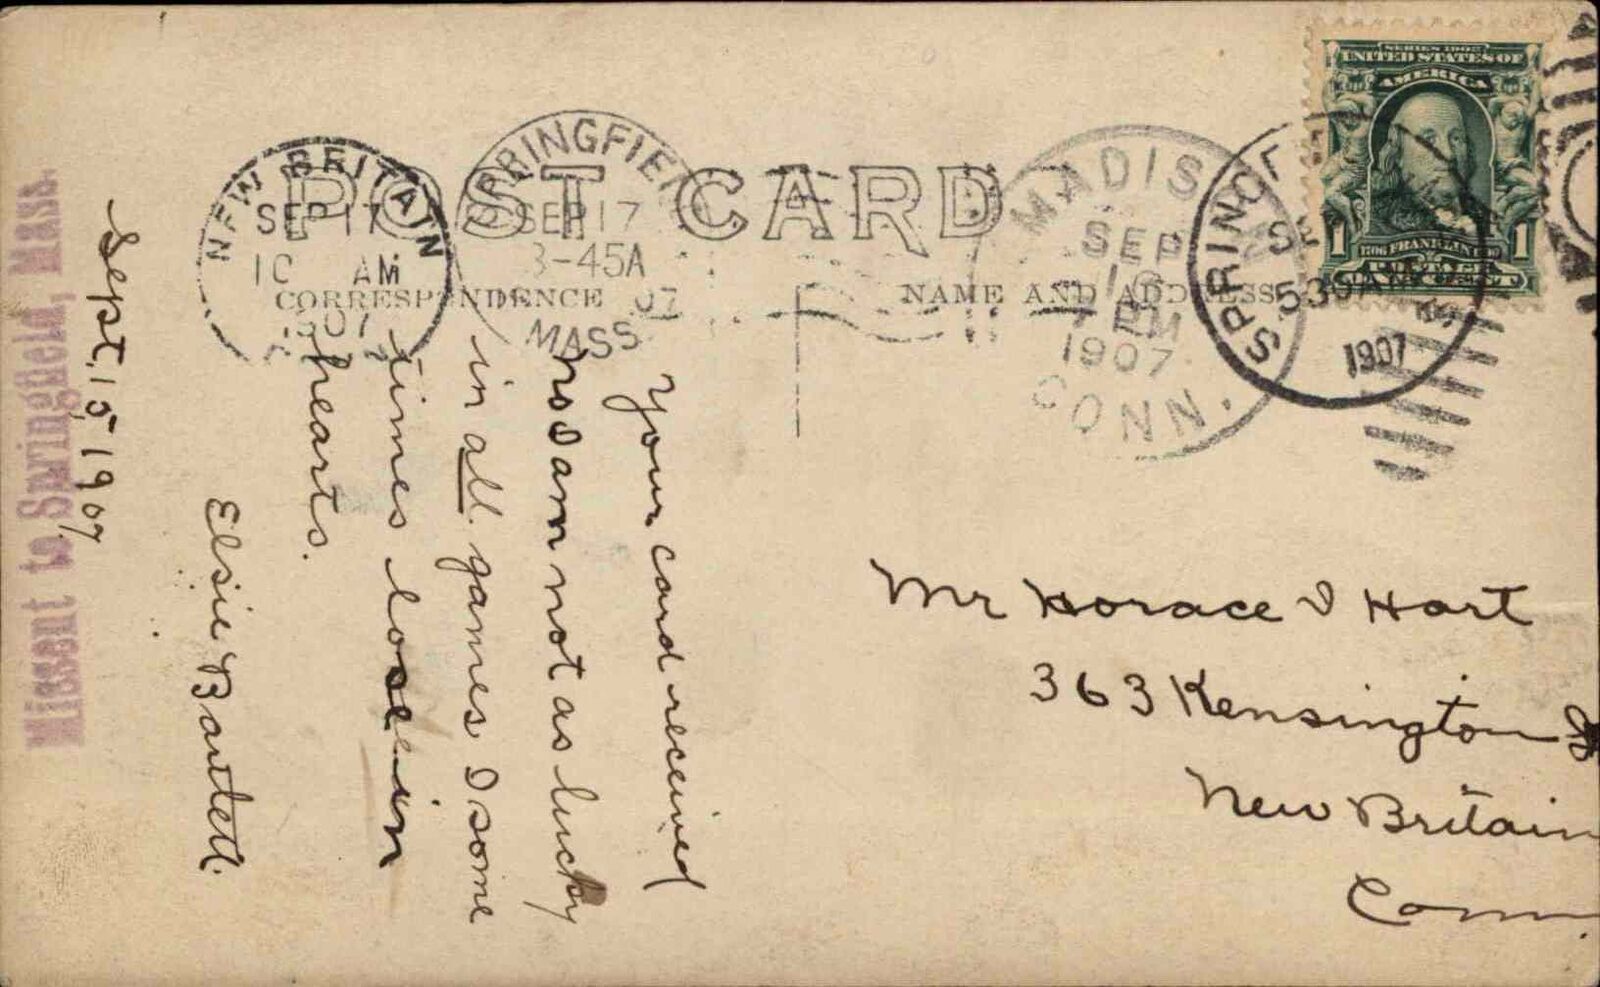 POST CARD
CORRESPONDENCE
NAME AND ADDRESS
NEW BRITAIN
SEP 17
10 AM
1907
SPRINGFIEL
SEP 17
3-45A
07
MASS
MADIS
SEP
16
PM
1907
CONN.
SPRINGF
S
530
1907
SERIES 1902
UNITED STATES OF
AMERICA
1 FRANKLIN 1
POSTAGE
ONE CENT
Missent to Springfield, Mass.
Sept. 15 1907
Your card received
no I am not as lucky
in all games I some
times lose in
hearts.
Elsie Bartlett.
Mr Horace I Hart
363 Kensington
New Britain
Conn